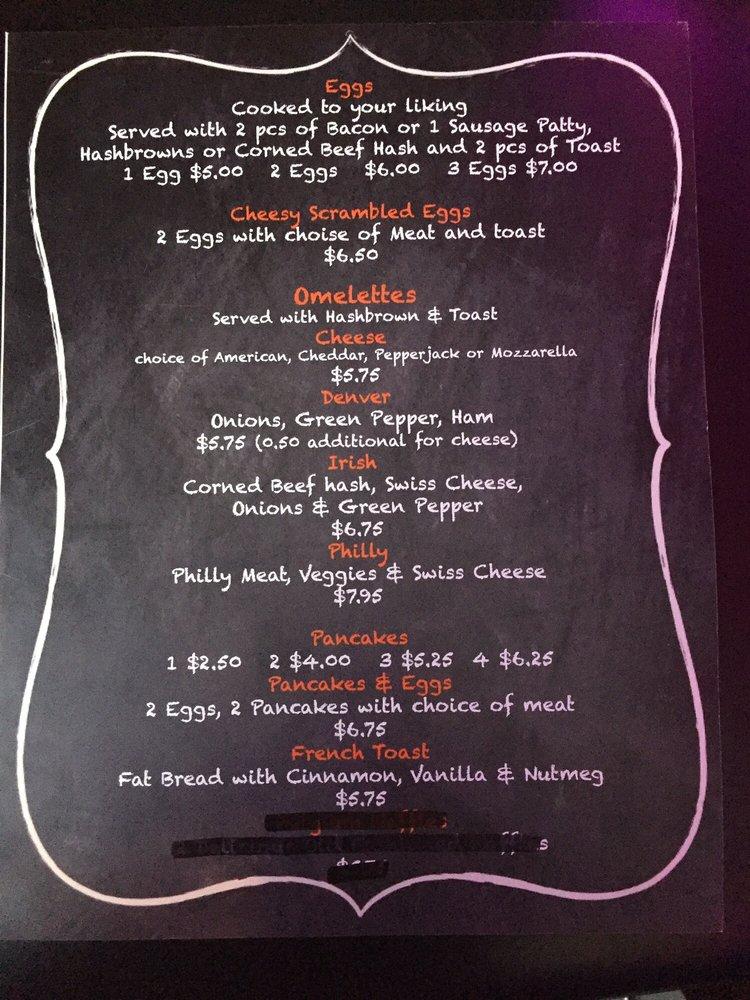 Eggs
Cooked to your liking
Served with 2 pcs of Bacon or 1 Sausage Patty,
Hashbrowns or Corned Beef Hash and 2 pcs of Toast
1 Egg $5.00 2 Eggs $6.00 3 Eggs $7.00
Cheesy Scrambled Eggs
2 Eggs with choise of Meat and toast
$6.50
Omelettes
Served with Hashbrown & Toast
Cheese
choice of American, Cheddar, Pepperjack or Mozzarella
$5.75
Denver
Onions, Green Pepper, Ham
$5.75 (0.50 additional for cheese)
Irish
Corned Beef hash, Swiss Cheese,
Onions & Green Pepper
$6.75
Philly
Philly Meat, Veggies & Swiss Cheese
$7.95
Pancakes
1 $2.50 2 $4.00 3 $5.25 4 $6.25
Pancakes & Eggs
2 Eggs, 2 Pancakes with choice of meat
$6.75
French Toast
Fat Bread with Cinnamon, Vanilla & Nutmeg
$5.75